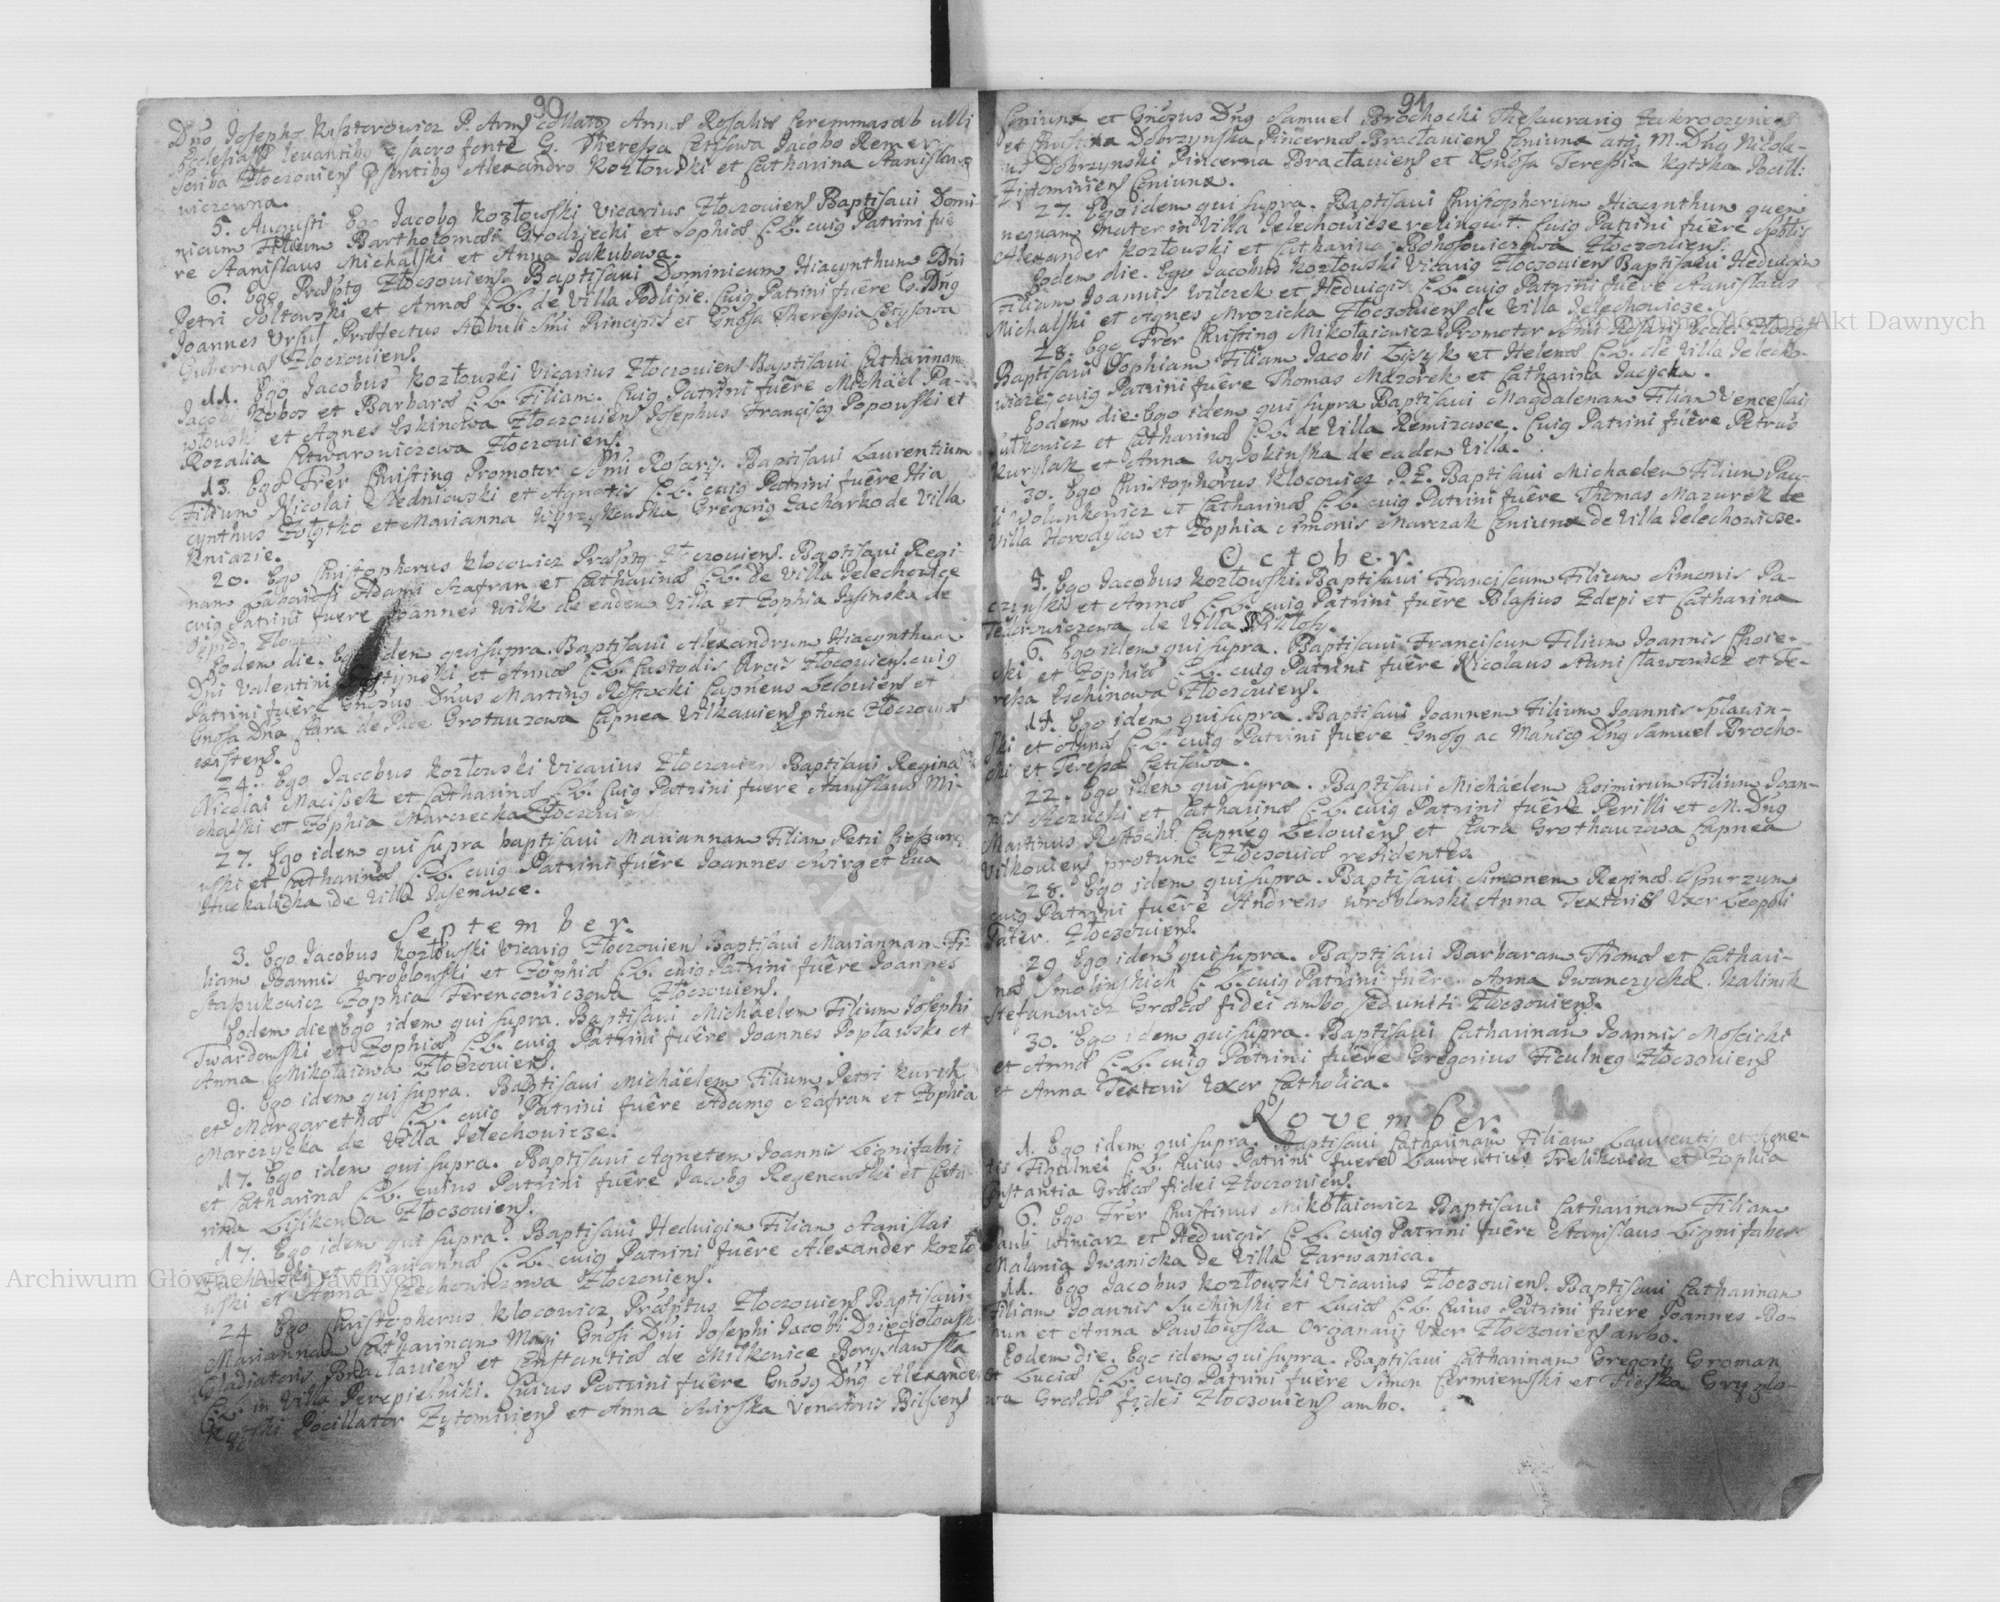 90
Dno Josepho Kaszterowicz P. Arm collato Annæ Rosaliæ Ceremmas ab illi
Ecclesiasti levantibg e sacro fonte G. Theressa Cetysowa Jacobo Remer
Scriba Złoczoviens psentibg Alexandro Kozłowski et Catharina Stanisław
wiczowna.
5. Augusti Ego Jacobg Kozłowski Vicarius Złoczoviens Baptisavi Domi
nicum Filium Bartholomæi Grodziecki et Sophiæ C.L. cuig Patrini fue
re Stanislaus Michalski et Anna Jakubowa.
6. Ego Præsptg Złoczoviens. Baptisavi Dominicum Hiacynthum Dni
Petri Sołtowski et Annæ C.L. de Villa Podlipie. Cuig Patrini fuere G. Dng
Joannes Ursul Præfectus Stabuli Smi Principis et Gnosa Theressia Cetysowa
Guberna Złoczoviens.
11. Ego Jacobus Kozłowski Vicarius Złoczoviens Baptisavi Catharinam
Jacobi Kobos et Barbaræ C.L. Filiam. Cuig Patrini fuere Michael Pa-
włowski et Agnes Eskinowa Złoczoviens Josephus Franciscg Popowski et
Rozalia Chwarowiczowa Złoczoviens.
13. Ego Frer Christing Promoter Ssmi Rosarij. Baptisavi Laurentium
Filium Nicolai Sledniewski et Agnetis C.L. cuig Patrini fuere Hia
cynthus Zołytko et Marianna Wyrzykowska, Gregorig Zacharko de Villa
Kniazie.
20. Ego Christophorus Klocowicz Præsptg Złoczoviens. Baptisavi Regi-
nam Adami Szafran et Catharinæ C.L. de Villa Jelechowice
cuig Patrini fuere Joannes Wilk de eadem Villa et Zophia Jasinska de
Eodem die. Ego idem qui supra. Baptisavi Alexandrum Hiacynthum
Dni Valentini et Annæ C.L. Custodis Arcis Złoczoviens. cuig
Patrini fuere Gnosus Dnus Marting Rostocki Capneus Beloviens et
Gnosa Dna Clara de Pace Grotauzowa Capnea Vilkaviens ptunc Złoczoviæ
existens.
24. Ego Jacobus Kozłowski Vicarius Złoczoviens Baptisavi Regina
Nicolai Maciszek et Catharinæ C.L. Cuig Patrini fuere Stanislaus Mi-
chalski et Zophia Marczecka Złoczoviens
27. Ego idem qui supra baptisavi Mariannam Filiam Petri
uski et Catharinæ C.L. cuig Patrini fuere Joannes Swirg et Eva
Huckaliczka de Villa Jasenowce.
September.
3. Ego Jacobus Kozłowski Vicarig Złoczoviens Baptisavi Mariannam Fi-
liam Joannis Wroblowski et Zophiæ C.L. cuig Patrini fuere Joannes
Stasiukowicz Zophia Ferencowiczowa Złoczoviens.
Eodem die Ego idem qui supra. Baptisavi Michaelem Filium Josephi
Twardowski et Zophiæ C.L. cuig Patrini fuere Joannes Popławski et
Anna Mikołaiowa Złoczoviens.
9. Ego idem qui supra. Baptisavi Michaelem Filium Petri Kurek
et Margarethæ C.L. cuig Patrini fuere Adamg Szafran et Zophia
Marczycka de Villa Jelechowicze.
17. Ego idem qui supra. Baptisavi Agnetem Joannis Lignifabri
et Catharinæ C.L. cuius Patrini fuere Jacobg Regenewski et Catha
rina Lysikowa Złoczoviens.
17. Ego idem qui supra. Baptisavi Hedvigim Filiam Stanislai
et Mariannæ C.L. cuig Patrini fuere Alexander Kozło
wski et Anna Złoczoviens.
24 Ego Christophorus Klocowicz Præsptus Złoczoviens Baptisavi
Mariannam Catharinam Magi Gnosi Dni Josephi Jacobi Dzięciołowski
Gladiatoris Bracłaviens et Constantiæ de Milkowice Borysławska
C.L. in Villa Perepielniki. Cuius Patrini fuere Gnosg Dng Alexander
Kętski Pocillator Zytomiriens et Anna Swirska Venatoris Bilscens
91
Coniunx et Gnosus Dng Samuel Brochocki Thesaurarig Zakroczymens
et Christina Dobrzynska Pincernæ Bracłaviens Coniunx atq M. Dng Nicola-
us Dobrzynski Pincerna Bracłaviens et Gnosa Teressia Kętska Pocill:
Zytomiriens Coniunx.
27. Ego idem qui supra. Baptisavi Christophorum Hiacynthum quem
nequam Mater in Villa Jelechowicze relinquit. Cuig Patrini fuere Spbtis
Alexander Kozłowski et Catharina Bohosowiczowa Złoczoviens.
Eodem die. Ego Jacobus Kozłowski Vicarig Złoczoviens Baptisavi Hedvigim
Filiam Joannis Wilczek et Hedvigis C.L. cuig Patrini fuere Stanislaus
Michalski et Agnes Mrozicka Złoczoviens de Villa Jelechowicze.
28. Ego Frer Christing Mikołaiewicz Promoter Smi Rosarij
Baptisavi Sophiam Filiam Jacobi Łysyk et Helenæ C.L. de Villa Jelecho-
wicze, cuig Patrini fuere Thomas Mazorek et Catharina Jacycka.
Eodem die. Ego idem qui supra Baptisavi Magdalenam Filiam Venceslai
Jutkowicz et Catharinæ C.L. de Villa Remizowce. Cuig Patrini fuere Petrus
Kurylak et Anna Wysokinska de eadem Villa.
30. Ego Christophorus Klocowicz P.Z. Baptisavi Michaelem Filium Pau-
li Wolunkewicz et Catharinæ C.L. cuig Patrini fuere Thomas Mazurek de
Villa Horodyłow et Zophia Simonis Marczak Coniunx de Villa Jelechowicze.
October.
5. Ego Jacobus Kozłowski. Baptisavi Franciscum Filium Simonis Pa-
czynski et Annæ C.L. cuig Patrini fuere Blasius Zdepi et Catharina
Teodorowiczowa de Villa
6. Ego idem qui supra. Baptisavi Franciscum Filium Joannis Choie-
cki et Zophiæ C.L. cuig Patrini fuere Nicolaus Stanisławowicz et Te-
resa Eschinowa Złoczoviens.
14. Ego idem qui supra. Baptisavi Joannem Filium Joannis Spławin-
ski et Annæ C.L. cuig Patrini fuere Gnosg ac Maficg Dng Samuel Brocho-
cki et Teresa Cetisowa.
22. Ego idem qui supra. Baptisavi Michaelem Casimirum Filium Joan-
nis Sczucki et Catharinæ C.L. cuig Patrini fuere Perilli et M. Dng
Martinus Rostocki Capneg Belowiens et Clara Grothauzowa Capnea
Vilkowiens protunc Złoczoviæ residentes.
28. Ego idem qui supra. Baptisavi Simonem Reginæ Spurzum
cuig Patrini fuere Andreas Wroblowski Anna Textoris Uxor Leopoli
Pater. Złoczoviens.
29 Ego idem qui supra. Baptisavi Barbaram Thomæ et Cathari-
næ Smolinskich C.L. cuig Patrini fuere Anna Jwanczycka. Kalinik
Stefanowicz Græcæ fidei ambo sed uniti Złoczoviens.
30. Ego idem qui supra. Baptisavi Catharinam Joannis Moscicki
et Annæ C.L. cuig Patrini fuere Gregorius Ficulneg Złoczoviens
et Anna Textoris Uxor Catholica.
November
1. Ego idem qui supra. Baptisavi Catharinam Filiam Laurentij et Agne-
tis Figulnei C.L. Cuius Patrini fuere Laurentius Trelikowicz et Zophia
Constantia Græcæ fidei Złoczoviens.
6. Ego Frer Christinus Mikołaiewicz Baptisavi Catharinam Filiam
Pauli Winiarz et Hedvigis C.L. cuig Patrini fuere Stanislaus Lignifaber
Malania Jwanicka de Villa Zarwanica.
11. Ego Jacobus Kozłowski Vicarius Złoczoviens. Baptisavi Catharinam
Filiam Joannis Suchinski et Luciæ C.L. Cuius Patrini fuere Joannes Bo-
hun et Anna Pawłowska Organarij Uxor Złoczoviens ambo.
Eodem die. Ego idem qui supra. Baptisavi Catharinam Gregorij Groman
et Luciæ C.L. cuig Patrini fuere Simon Cermiewski et Fieska Gryglo-
wa Græcæ fidei Złoczoviens ambo.
Archiwum Główne Akt Dawnych
Archiwum Główne Akt Dawnych